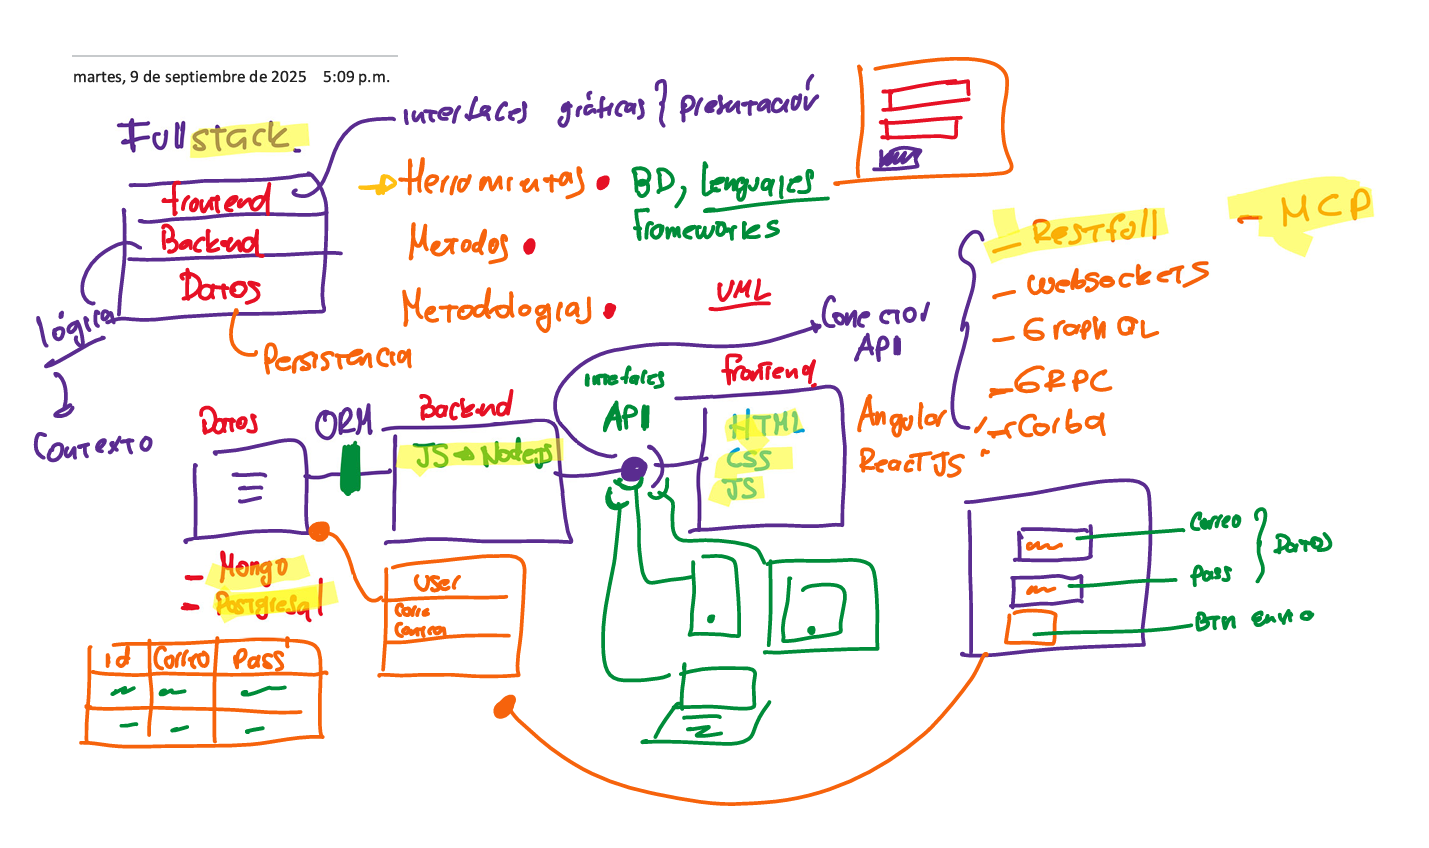 martes, 9 de septiembre de 2025 5:09 p.m.
Fullstack.
interfaces gráficas } presentación
Frontend
Backend
Datos
lógica
Contexto
Persistencia
Herramientas
BD, Lenguajes
frameworks
Metodos
Metodologías
UML
Conector
API
- Restfull
- Websockets
- Graph QL
- GRPC
- Corba
- MCP
Datos
ORM
Backend
JS → Nodejs
API
frontend
HTML
CSS
JS
Angular
React JS
- Mongo
- Postgresql
id Correo Pass
User
Corre
Contra
Correo
Pass
Datos
BTN envio